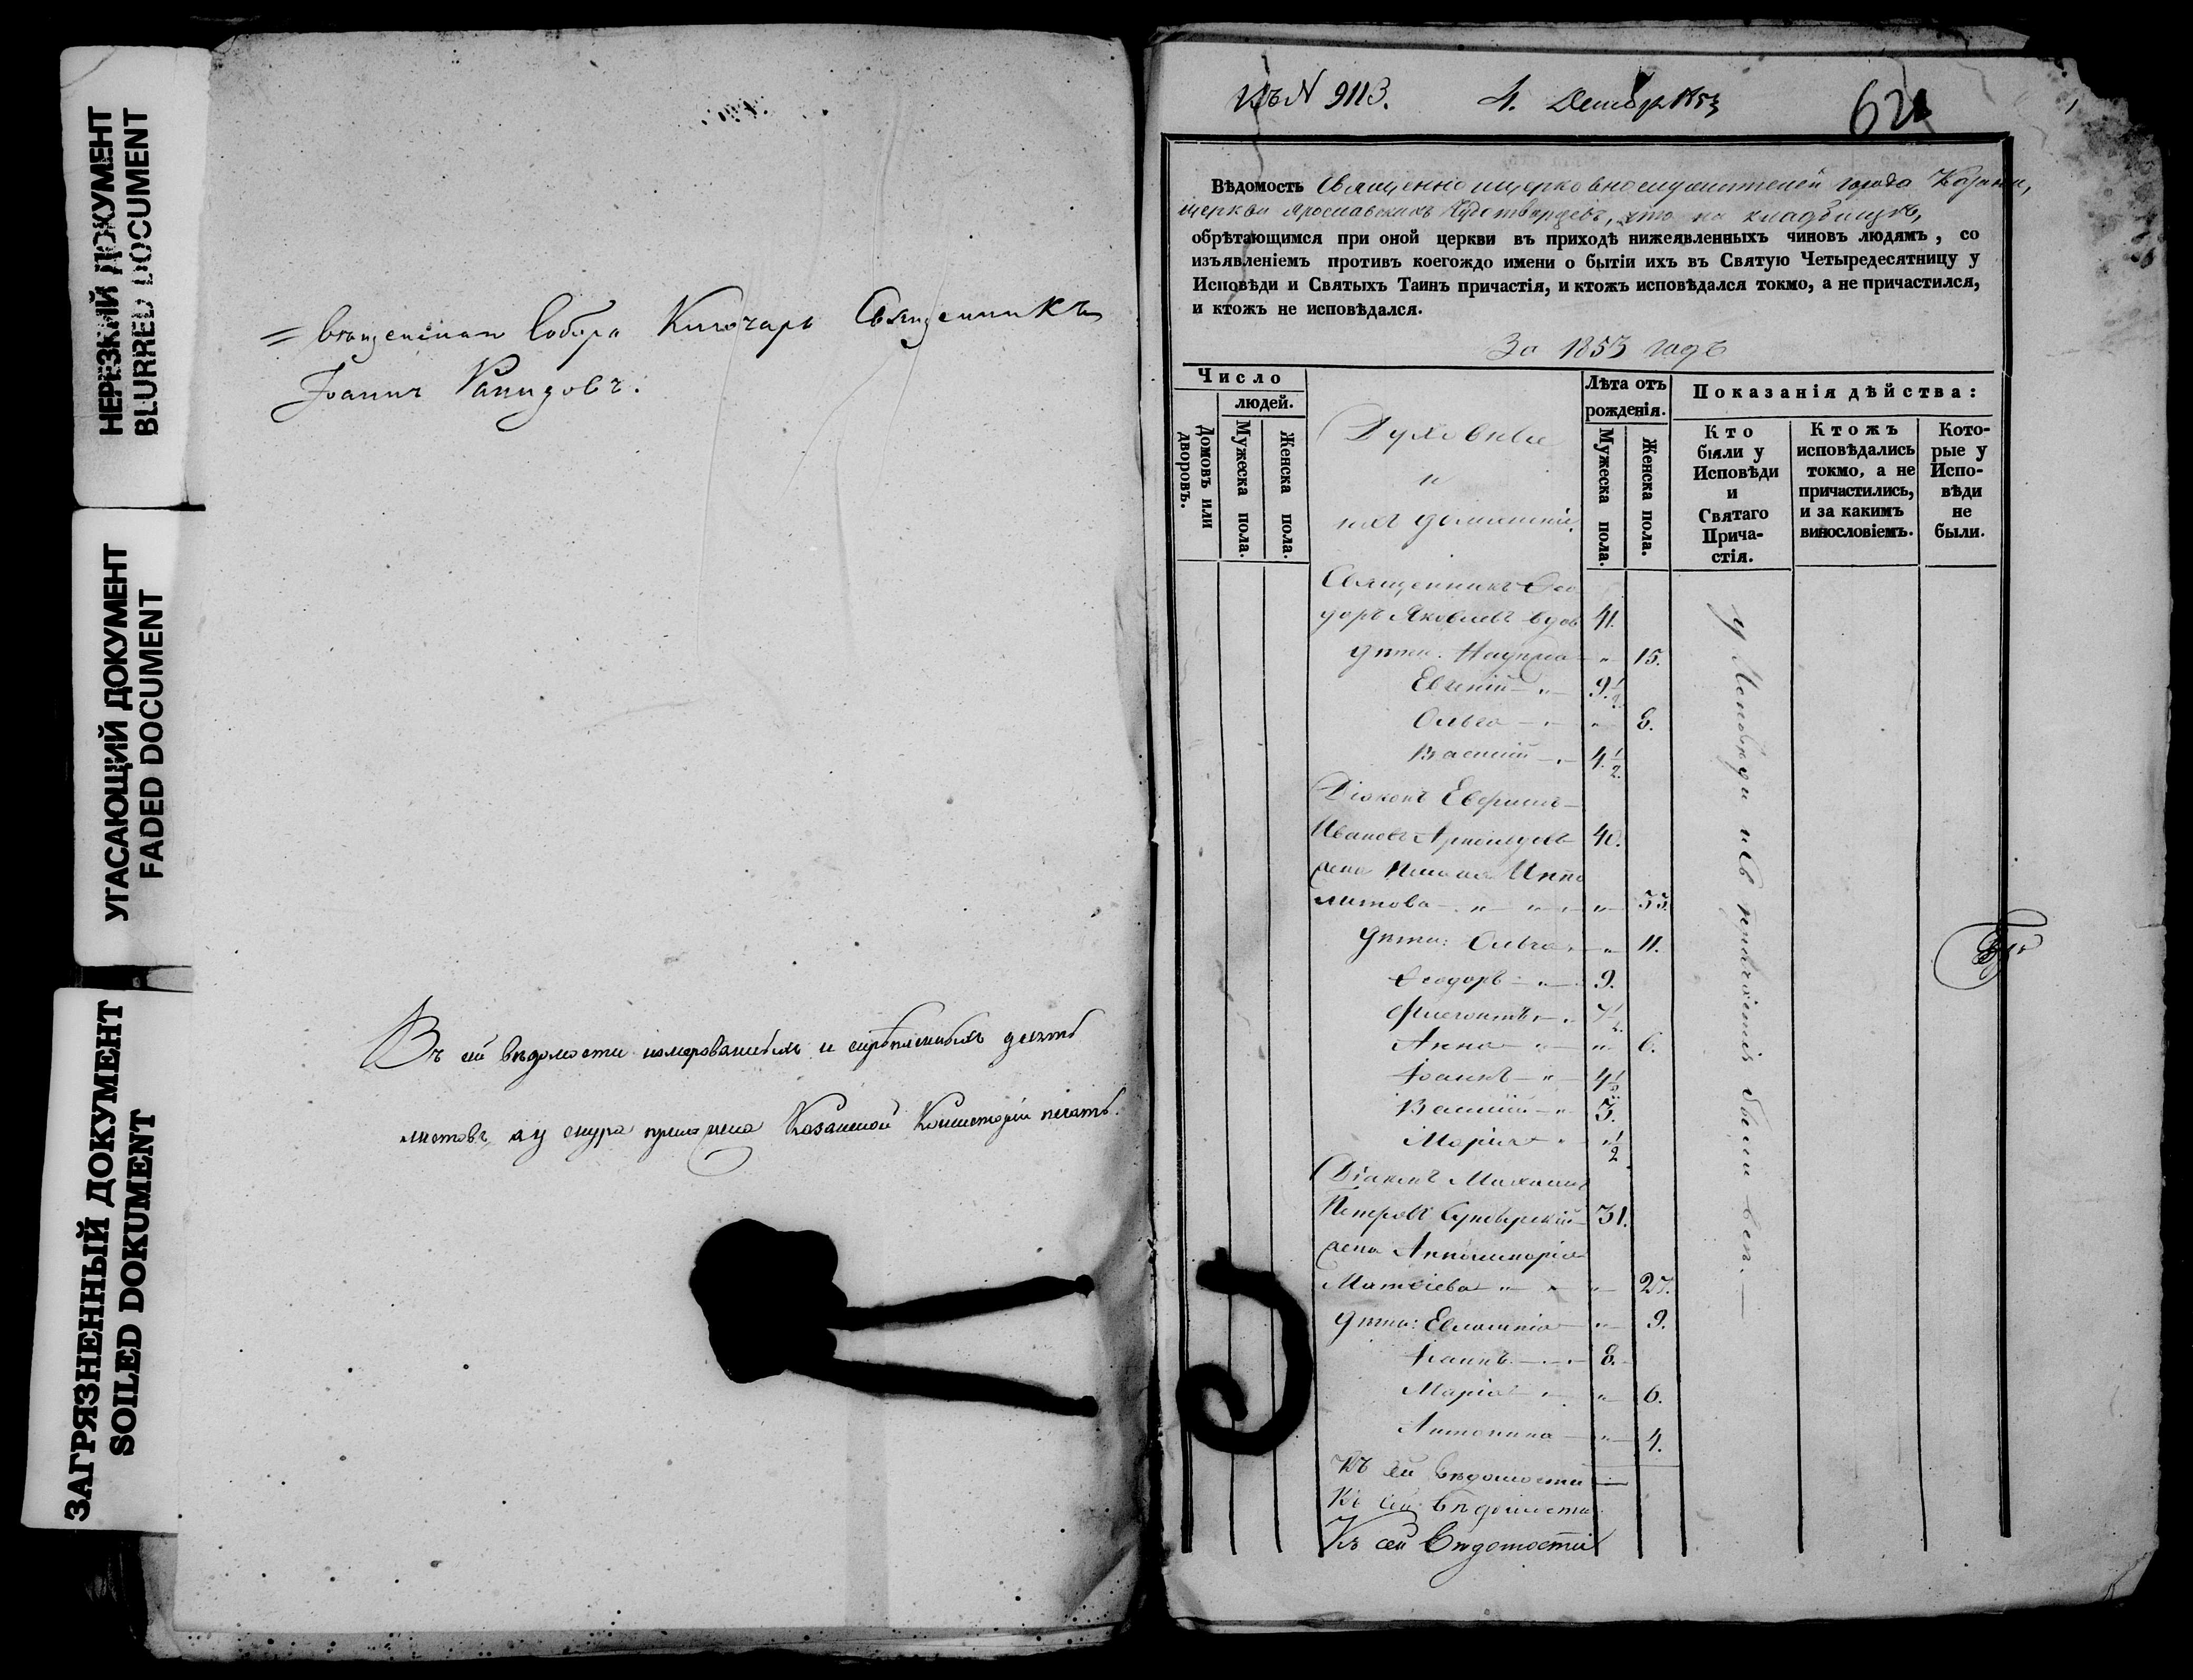 НЕРЕЗКИЙ ДОКУМЕНТ
BLURRED DOCUMENT
УГАСАЮЩИЙ ДОКУМЕНТ
FADED DOCUMENT
ЗАГРЯЗНЕННЫЙ ДОКУМЕНТ
SOILED DOKUMENT
= Собора Ключарь Священникъ
Іоаннъ
Въ сей вѣдомости нумерованныхъ и скрѣпленныхъ десять
листовъ, а у снура приложена Казанской Консисторіи печать.
Къ № 9113. 4. Декабр 1853
62
Вѣдомость Священно и церковнослужителей города Казани,
церкви Ярославскихъ Чудотворцевъ, что на кладбищѣ,
обрѣтающимся при оной церкви въ приходѣ нижеявленныхъ чиновъ людямъ, со
изъявленіемъ противъ коегождо имени о бытіи ихъ въ Святую Четыредесятницу у
Исповѣди и Святыхъ Таинъ причастія, и ктожъ исповѣдался токмо, а не причастился,
и ктожъ не исповѣдался.
За 1853 годъ
Число
людей.
Домовъ или дворовъ.
Мужеска пола.
Женска пола.
Духовные
и
ихъ домашніе.
Лѣта отъ
рожденія.
Мужеска пола.
Женска пола.
Показанія дѣйства:
Кто
были у
Исповѣди
и
Святаго
Прича-
стія.
Ктожъ
исповѣдались
токмо, а не
причастились,
и за какимъ
винословіемъ.
Кото-
рые у
Испо-
вѣди
не
были.
Священникъ Ѳео
доръ Яковлевъ вдов 41.
дѣти: — „ — 15.
Евгеній — „ — 9.½
Ольга — „ — 8.
Василій — „ — 4.½
Діаконъ
Ивановъ 40.
жена
литова — „ — 33.
дѣти: Ольга — „ — 11.
Ѳеодоръ — „ — 9.
7½
Анна — „ — 6.
Іоаннъ — „ — 4½
Василій — „ 3.
Марія „ ½
Діаконъ Михаилъ
Петровъ 31.
жена Апполинарія
Матѳіева — „ — 27.
дѣти: Евлампія — „ — 9.
Іоаннъ — „ — 8.
Марія — „ — 6.
Антонина — „ — 4.
Къ сей вѣдомости —
Къ сей вѣдомости
Къ сей вѣдомости
У Исповѣди и Св. причастія были всѣ. —